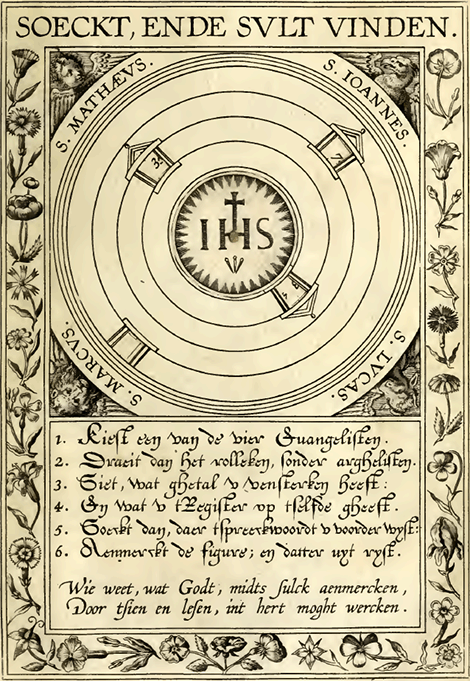 SOECKT, ENDE SVLT VINDEN.
S. MATHÆVS.
S. IOANNES.
3
7
IHS
S. MARCVS.
S. LVCAS.
1. Kiest een van de vier Euangelisten.
2. Draeit dan het rolleken, sonder arghelisten.
3. Siet, wat ghetal v vensterken heeft:
4. En wat v tRegister op tselfde gheeft.
5. Soeckt dan, daer tspreeckwoordt v voorder wyst:
6. Aenmerckt de figure; en datter uyt ryst.
Wie weet, wat Godt, midts sulck aenmercken,
Door tsien en lesen, int hert moght wercken.